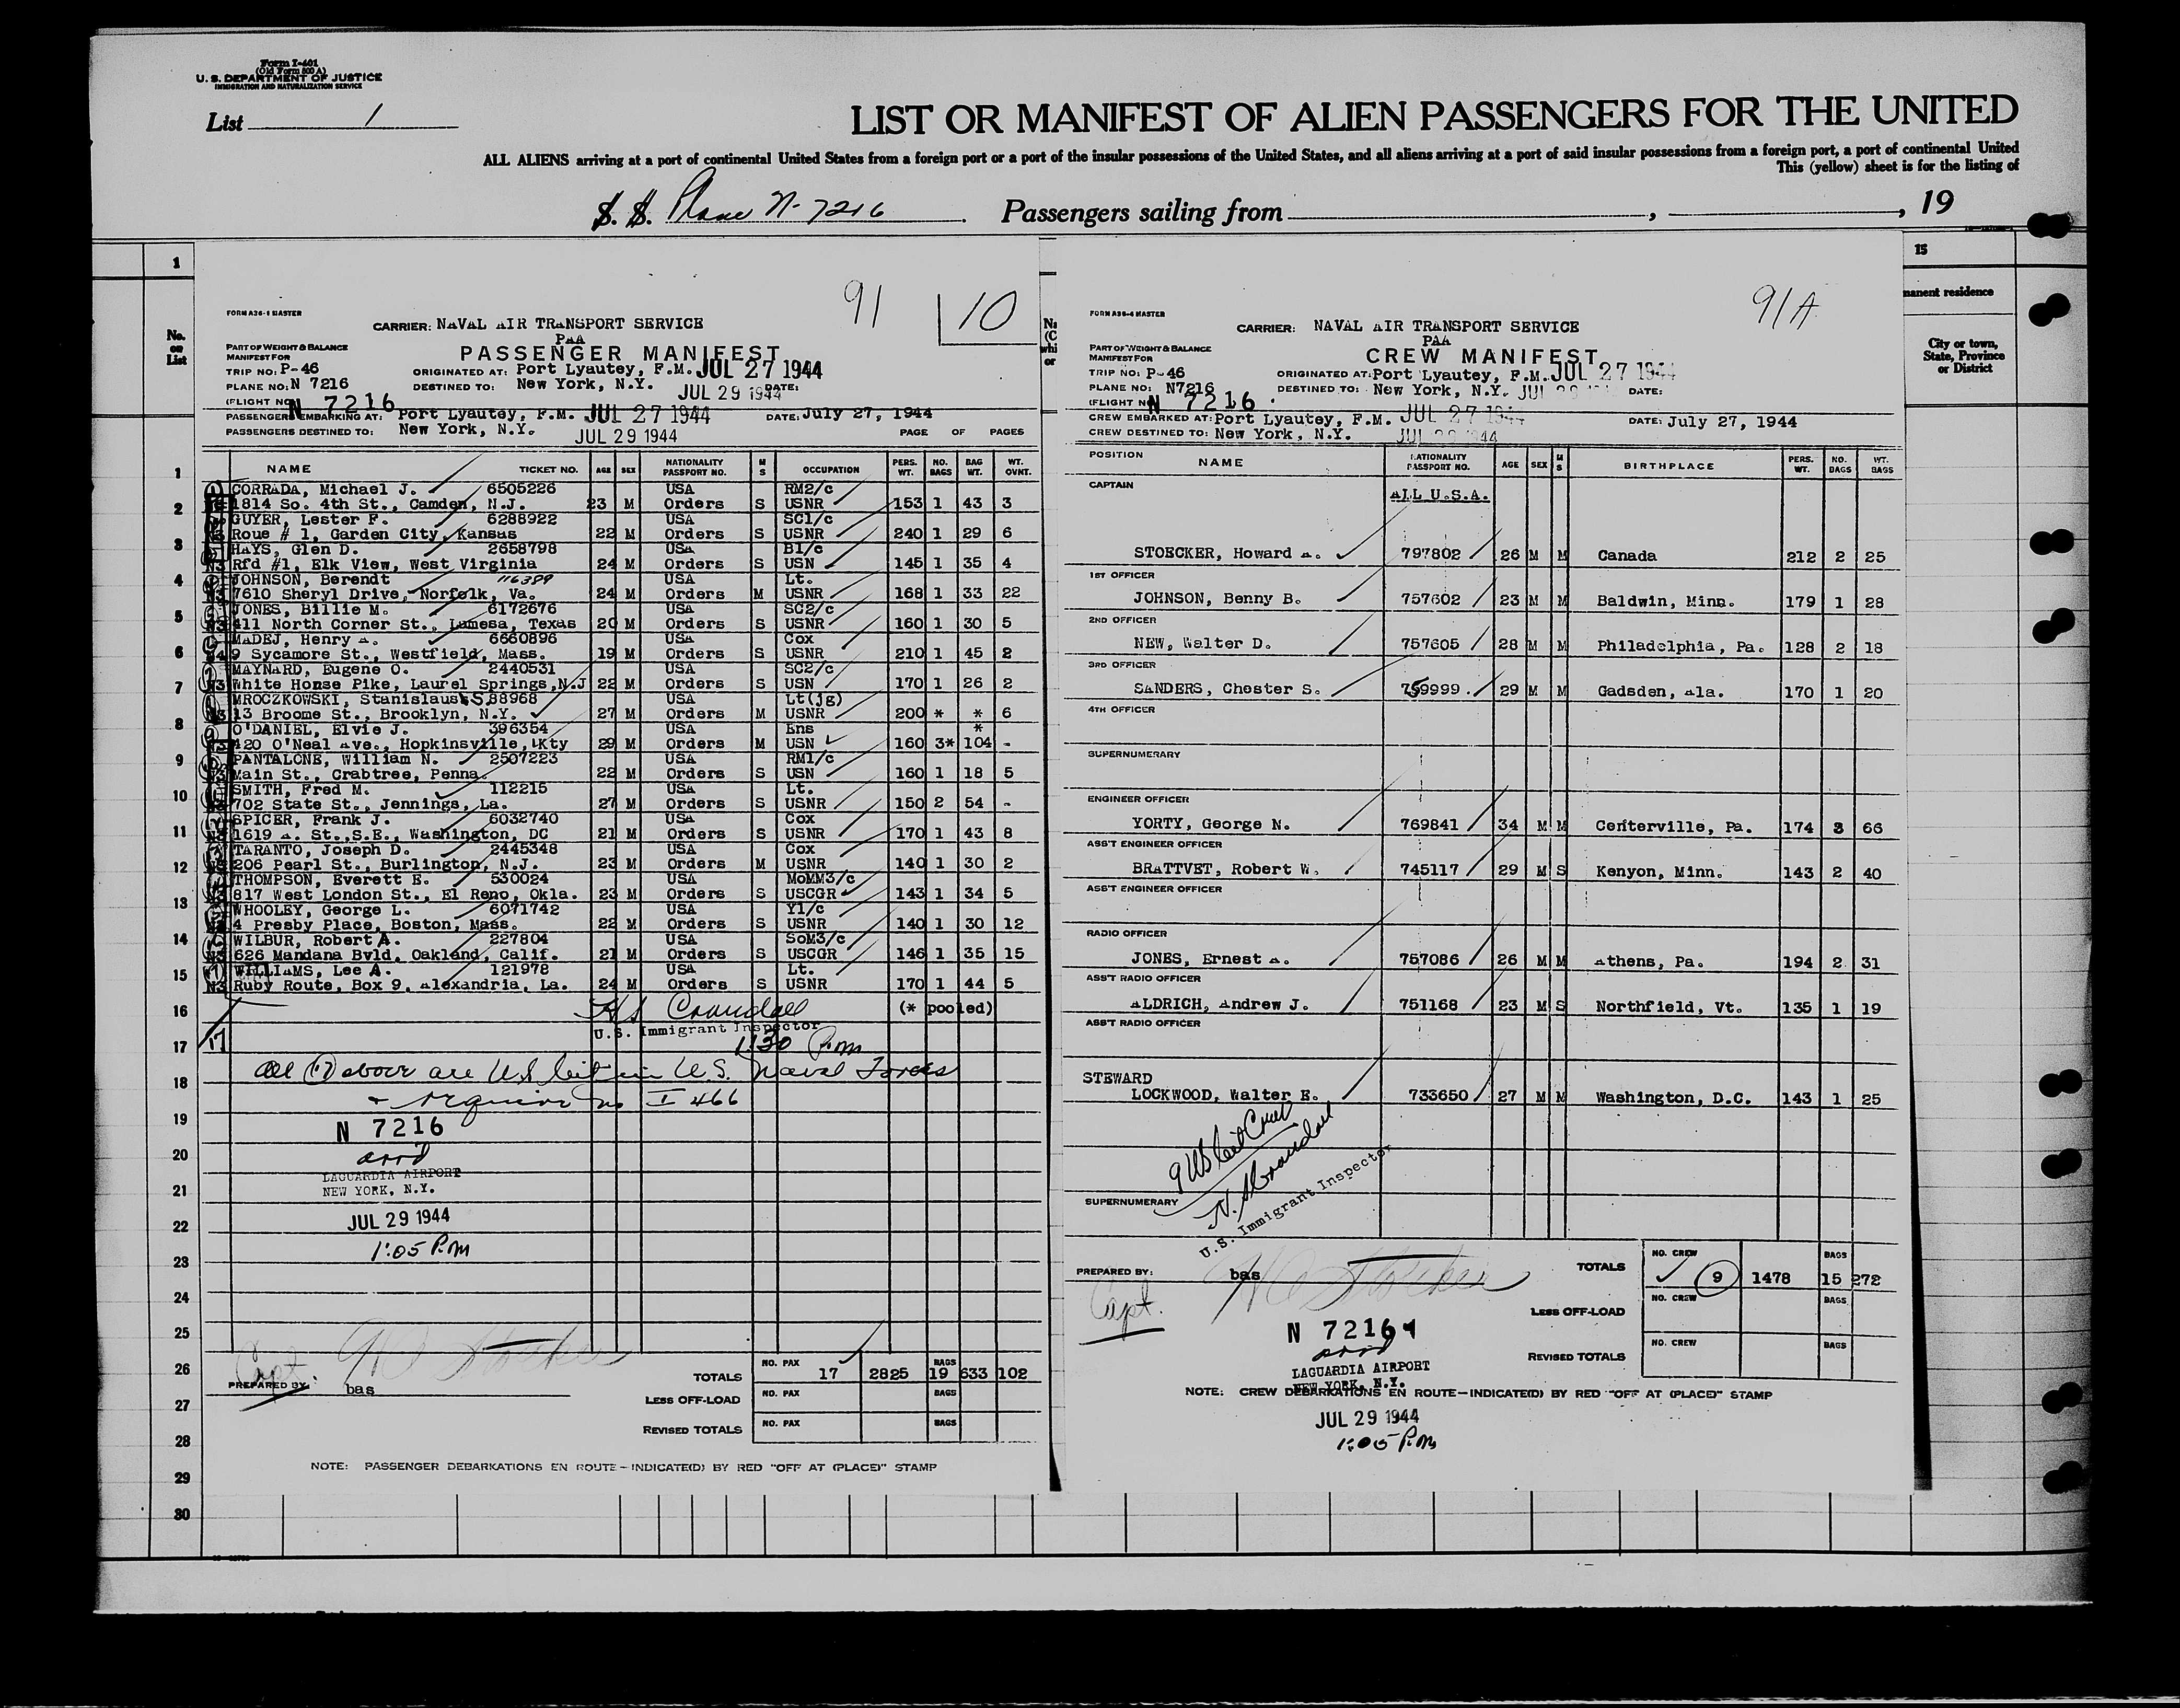 Form I-401
(Old Form 500 A)
U. S. DEPARTMENT OF JUSTICE
IMMIGRATION AND NATURALIZATION SERVICE
List 1
LIST OR MANIFEST OF ALIEN PASSENGERS FOR THE UNITED
ALL ALIENS arriving at a port of continental United States from a foreign port or a port of the insular possessions of the United States, and all aliens arriving at a port of said insular possessions from a foreign port, a port of continental United
This (yellow) sheet is for the listing of
S. S. Plane N-7216 Passengers sailing from , , 19
1
No. on List
91 10
FORM A36-1 MASTER
CARRIER: NAVAL AIR TRANSPORT SERVICE
PAA
PART OF WEIGHT & BALANCE
MANIFEST FOR
PASSENGER MANIFEST
TRIP NO: P-46 ORIGINATED AT: Port Lyautey, F.M. JUL 27 1944
PLANE NO: N 7216 DESTINED TO: New York, N.Y. JUL 29 1944 DATE:
(FLIGHT NO N 7216
PASSENGERS EMBARKING AT: Port Lyautey, F.M. JUL 27 1944 DATE: July 27, 1944
PASSENGERS DESTINED TO: New York, N.Y. JUL 29 1944 PAGE OF PAGES
NAME TICKET NO. AGE SEX NATIONALITY PASSPORT NO. M S OCCUPATION PERS. WT. NO. BAGS BAG WT. WT. OVNT.
CORRADA, Michael J. 6505226 USA RM2/c
1814 So. 4th St., Camden, N.J. 23 M Orders S USNR 153 1 43 3
GUYER, Lester F. 6288922 USA SC1/c
Roue # 1, Garden City, Kansas 22 M Orders S USNR 240 1 29 6
HAYS, Glen D. 2658798 USA B1/c
Rfd #1, Elk View, West Virginia 24 M Orders S USN 145 1 35 4
JOHNSON, Berendt 116389 USA Lt.
7610 Sheryl Drive, Norfolk, Va. 24 M Orders M USNR 168 1 33 22
JONES, Billie M. 6172676 USA SC2/c
411 North Corner St., Lamesa, Texas 20 M Orders S USNR 160 1 30 5
MADEJ, Henry A. 6660896 USA Cox
9 Sycamore St., Westfield, Mass. 19 M Orders S USNR 210 1 45 2
MAYNARD, Eugene O. 2440531 USA SC2/c
White Honse Pike, Laurel Springs, N.J 22 M Orders S USN 170 1 26 2
MROCZKOWSKI, Stanislaus S. 88968 USA Lt(jg)
13 Broome St., Brooklyn, N.Y. 27 M Orders M USNR 200 * * 6
O'DANIEL, Elvie J. 396354 USA Ens *
420 O'Neal Ave., Hopkinsville, Kty 29 M Orders M USN 160 3* 104 -
PANTALONE, William N. 2507223 USA RM1/c
Main St., Crabtree, Penna. 22 M Orders S USN 160 1 18 5
SMITH, Fred M. 112215 USA Lt.
702 State St., Jennings, La. 27 M Orders S USNR 150 2 54 -
SPICER, Frank J. 6032740 USA Cox
1619 A. St.,S.E., Washington, DC 21 M Orders S USNR 170 1 43 8
TARANTO, Joseph D. 2445348 USA Cox
206 Pearl St., Burlington, N.J. 23 M Orders M USNR 140 1 30 2
THOMPSON, Everett E. 530024 USA MoMM3/c
817 West London St., El Reno, Okla. 23 M Orders S USCGR 143 1 34 5
WHOOLEY, George L. 6071742 USA Y1/c
4 Presby Place, Boston, Mass. 22 M Orders S USNR 140 1 30 12
WILBUR, Robert A. 227804 USA SoM3/c
626 Mandana Bvld, Oakland, Calif. 21 M Orders S USCGR 146 1 35 15
WILLIAMS, Lee A. 121978 USA Lt.
Ruby Route, Box 9, Alexandria, La. 24 M Orders S USNR 170 1 44 5
Crandall (* pooled)
U.S. Immigrant Inspector
17 1:30 P.m
All (17) above are US cit in U.S. Naval Forces
+ require no I 466
N 7216
arrd
LAGUARDIA AIRPORT
NEW YORK, N.Y.
JUL 29 1944
1:05 P.m
Capt.
PREPARED BY bas
TOTALS NO. PAX 17 2825 BAGS 19 633 102
LESS OFF-LOAD NO. PAX BAGS
REVISED TOTALS NO. PAX BAGS
NOTE: PASSENGER DEBARKATIONS EN ROUTE—INDICATE(D) BY RED "OFF AT (PLACE)" STAMP
1
2
3
4
5
6
7
8
9
10
11
12
13
14
15
16
17
18
19
20
21
22
23
24
25
26
27
28
29
30
91A
FORM A36-4 MASTER
CARRIER: NAVAL AIR TRANSPORT SERVICE
PAA
PART OF WEIGHT & BALANCE
MANIFEST FOR
CREW MANIFEST
TRIP NO: P-46 ORIGINATED AT: Port Lyautey, F.M. JUL 27 1944
PLANE NO: N7216 DESTINED TO: New York, N.Y. JUL 29 DATE:
(FLIGHT NO N 7216
CREW EMBARKED AT: Port Lyautey, F.M. JUL 27 1944 DATE: July 27, 1944
CREW DESTINED TO: New York, N.Y. JUL 29 1944
POSITION NAME NATIONALITY PASSPORT NO. AGE SEX M S BIRTHPLACE PERS. WT. NO. BAGS WT. BAGS
CAPTAIN ALL U.S.A.
STOECKER, Howard A. 797802 26 M M Canada 212 2 25
1ST OFFICER
JOHNSON, Benny B. 757602 23 M M Baldwin, Minn. 179 1 28
2ND OFFICER
NEW, Walter D. 757605 28 M M Philadelphia, Pa. 128 2 18
3RD OFFICER
SANDERS, Chester S. 759999. 29 M M Gadsden, Ala. 170 1 20
4TH OFFICER
SUPERNUMERARY
ENGINEER OFFICER
YORTY, George N. 769841 34 M M Centerville, Pa. 174 3 66
ASS'T ENGINEER OFFICER
BRATTVET, Robert W. 745117 29 M S Kenyon, Minn. 143 2 40
ASS'T ENGINEER OFFICER
RADIO OFFICER
JONES, Ernest A. 757086 26 M M Athens, Pa. 194 2 31
ASS'T RADIO OFFICER
ALDRICH, Andrew J. 751168 23 M S Northfield, Vt. 135 1 19
ASS'T RADIO OFFICER
STEWARD
LOCKWOOD, Walter E. 733650 27 M M Washington, D.C. 143 1 25
9 US cit Crew
Crandall
U.S. Immigrant Inspector
SUPERNUMERARY
PREPARED BY: bas
Capt.
TOTALS NO. CREW 9 1478 BAGS 15 272
LESS OFF-LOAD NO. CREW BAGS
REVISED TOTALS NO. CREW BAGS
N 7216
arrd
LAGUARDIA AIRPORT
NEW YORK, N.Y.
NOTE: CREW DEBARKATIONS EN ROUTE—INDICATE(D) BY RED "OFF AT (PLACE)" STAMP
JUL 29 1944
1:05 P.m
15
manent residence
City or town, State, Province or District